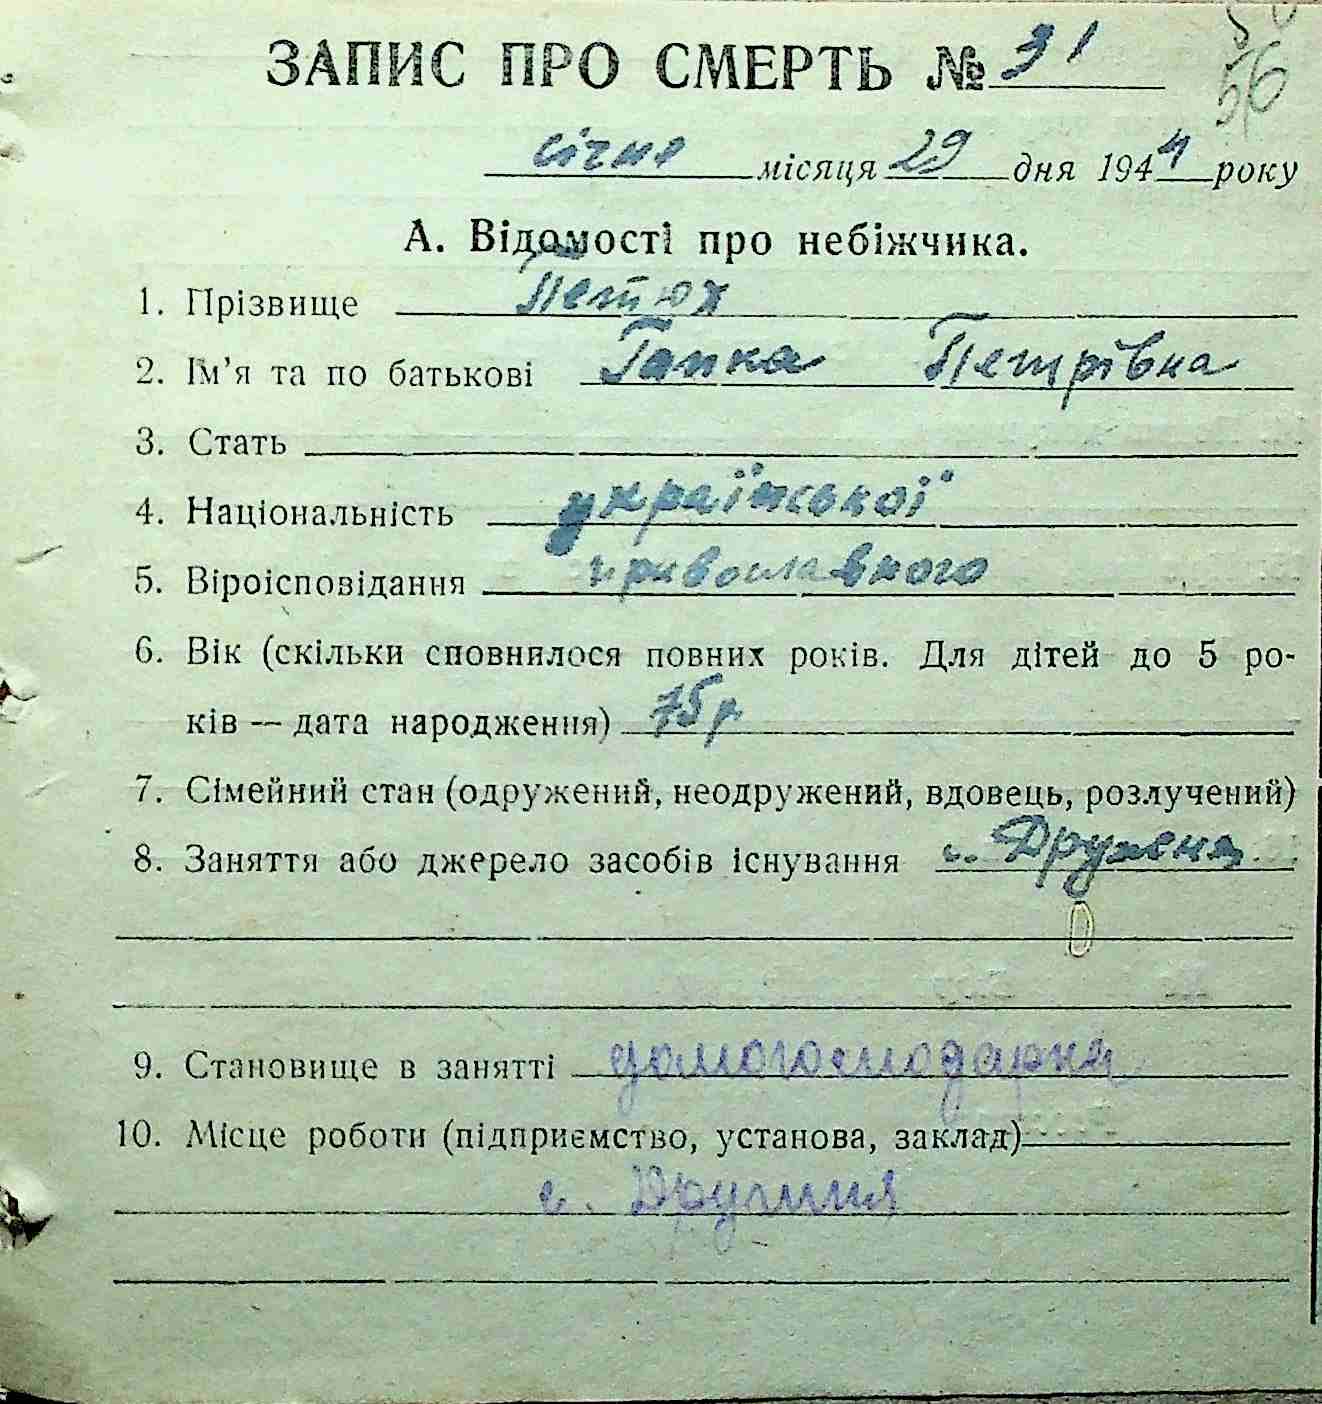 56
ЗАПИС ПРО СМЕРТЬ № 31
січне місяця 29 дня 1944 року
А. Відомості про небіжчика.
1. Прізвище Петюх
2. Ім'я та по батькові Гапка Петрівна
3. Стать
4. Національність української
5. Віроісповідання православного
6. Вік (скільки сповнилося повних років. Для дітей до 5 ро-
ків — дата народження) 75 р
7. Сімейний стан (одружений, неодружений, вдовець, розлучений)
8. Заняття або джерело засобів існування
9. Становище в занятті домогосподарка
10. Місце роботи (підприємство, установа, заклад)
с.